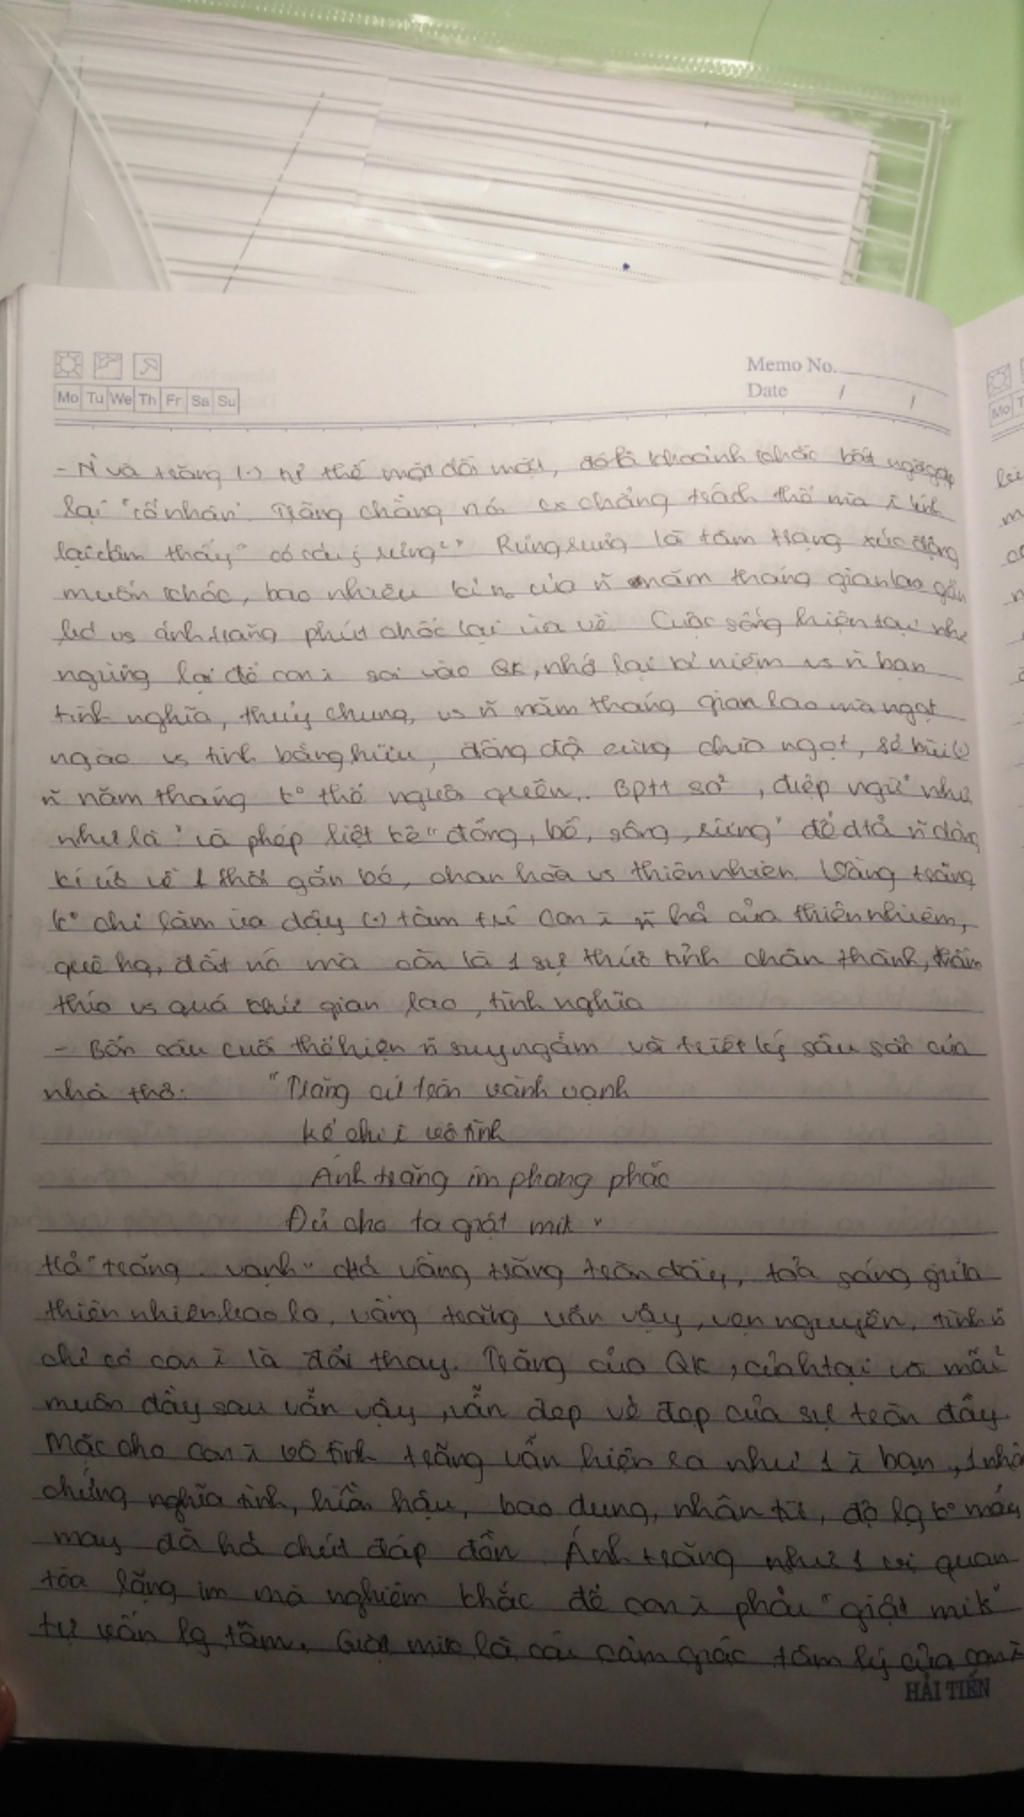 Memo No.
Date / /
Mo Tu We Th Fr Sa Su
- N' và trăng (.) tư thế mặt đối mặt, đó là khoảnh khắc bất ngờ gặp
lại "cố nhân". Trăng chẳng nói chẳng trách thế mà
lại cảm thấy "có cái j rưng" Rưng rưng là tâm trạng xúc động
muốn khóc, bao nhiêu kỉ n. của ~n năm tháng gian lao gắn
bó vs ánh trăng phút chốc lại ùa về Cuộc sống hiện tại như
ngừng lại để con soi vào QK, nhớ lại kỉ niệm vs ~n bạn
tình nghĩa, thủy chung, vs ~n năm tháng gian lao mà ngọt
ngào vs tình bằng hữu, đồng đội cùng chia ngọt, sẻ bùi (.)
~n năm tháng k° thể nào quên.. BPTT so², điệp ngữ "như
như là" và phép liệt kê "đồng, bể, sông, rừng" để dtả ~n dòng
kí ức về 1 thời gắn bó, chan hoà vs thiên nhiên Vầng trăng
k° chỉ làm ùa dậy (.) tâm trí con ~n hả của thiên nhiêm,
quê hg, đất nc mà còn là 1 sự thức tỉnh chân thành, thấm
thía vs quá khứ gian lao, tình nghĩa
- Bốn câu cuối thể hiện ~n suy ngẫm và triết lý sâu sắc của
nhà thơ: "Trăng cứ tròn vành vạnh
kể chi vô tình
Ánh trăng im phăng phắc
Đủ cho ta giật mik"
trả "trăng .. vạnh" dtả vầng trăng tròn đầy, toả sáng giữa
thiên nhiên bao la, vầng trăng vẫn vậy, vẹn nguyên, tình
chỉ có con là đổi thay. Trăng của QK, của htại và mãi²
muôn đầy sau vẫn vậy, vẫn đẹp vẻ đẹp của sự tròn đầy
Mặc cho con vô tình trăng vẫn hiện ra như 1 bạn, 1 nhân
chứng nghĩa tình, hiền hậu, bao dung, nhân từ, độ lg k° mảy
may đòi hỏi chút đáp đền Ánh trăng như 1 vị quan
tòa lặng im mà nghiêm khắc để con phải "giật mik"
tự vấn lg tâm. Giật mik là cái cảm giác tâm lý của con
HẢI TIẾN